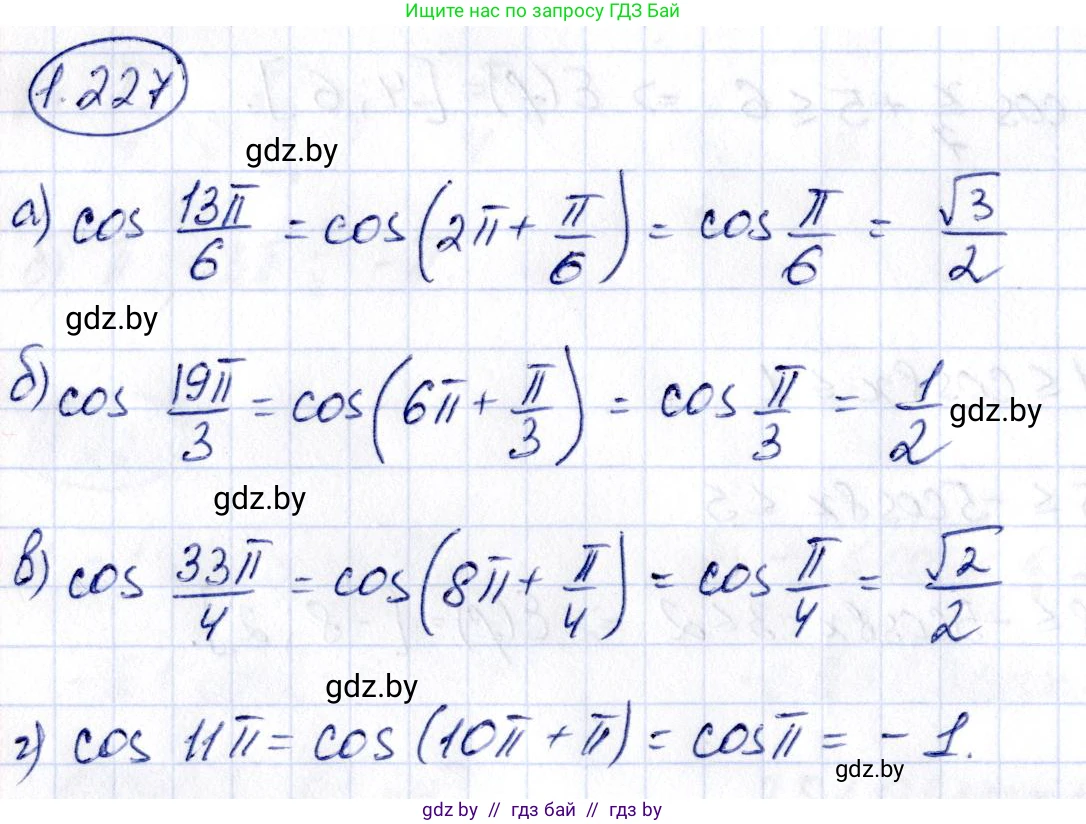 Ищите нас по запросу ГДЗ Бай
1.227
gdz.by
а) cos 13π/6 = cos(2π + π/6) = cos π/6 = √3/2
gdz.by
б) cos 19π/3 = cos(6π + π/3) = cos π/3 = 1/2
gdz.by
gdz.by
в) cos 33π/4 = cos(8π + π/4) = cos π/4 = √2/2
gdz.by
г) cos 11π = cos(10π + π) = cos π = -1.
gdz.by
gdz by // гдз бай // гдз by